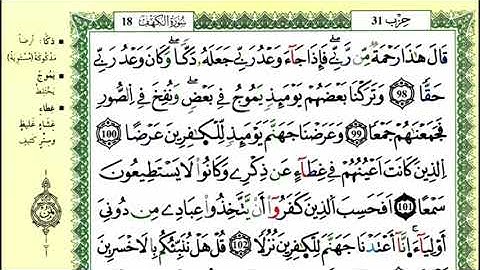 سُورَةُ الكَهْف 18
حِزْب 31
قَالَ هَٰذَا رَحْمَةٌ مِّن رَّبِّے فَإِذَا جَآءَ وَعْدُ رَبِّے جَعَلَهُۥ دَكّاً وَكَانَ وَعْدُ رَبِّے
حَقّاً 98 وَتَرَكْنَا بَعْضَهُمْ يَوْمَئِذٍ يَمُوجُ فِے بَعْضٍ وَنُفِخَ فِے الصُّورِ
فَجَمَعْنَٰهُمْ جَمْعاً 99 وَعَرَضْنَا جَهَنَّمَ يَوْمَئِذٍ لِّلْكَٰفِرِينَ عَرْضاً 100
الذِينَ كَانَتَ اَعْيُنُهُمْ فِے غِطَآءٍ عَن ذِكْرِے وَكَانُوا لَا يَسْتَطِيعُونَ
سَمْعاً 101 اَفَحَسِبَ الذِينَ كَفَرُوٓا أَنْ يَّتَّخِذُوا عِبَادِے مِن دُونِيَ
أَوْلِيَآءَ اِنَّآ أَعْتَدْنَا جَهَنَّمَ لِلْكَٰفِرِينَ نُزُلاً 102 قُلْ هَلْ نُنَبِّئُكُم بِالَاخْسَرِينَ
دَكّاً: أرضاً
مدكوكة (مستوية)
يَمُوجُ
يختلط
غِطَاءٍ
غشاء غليظ
وستر كثيف